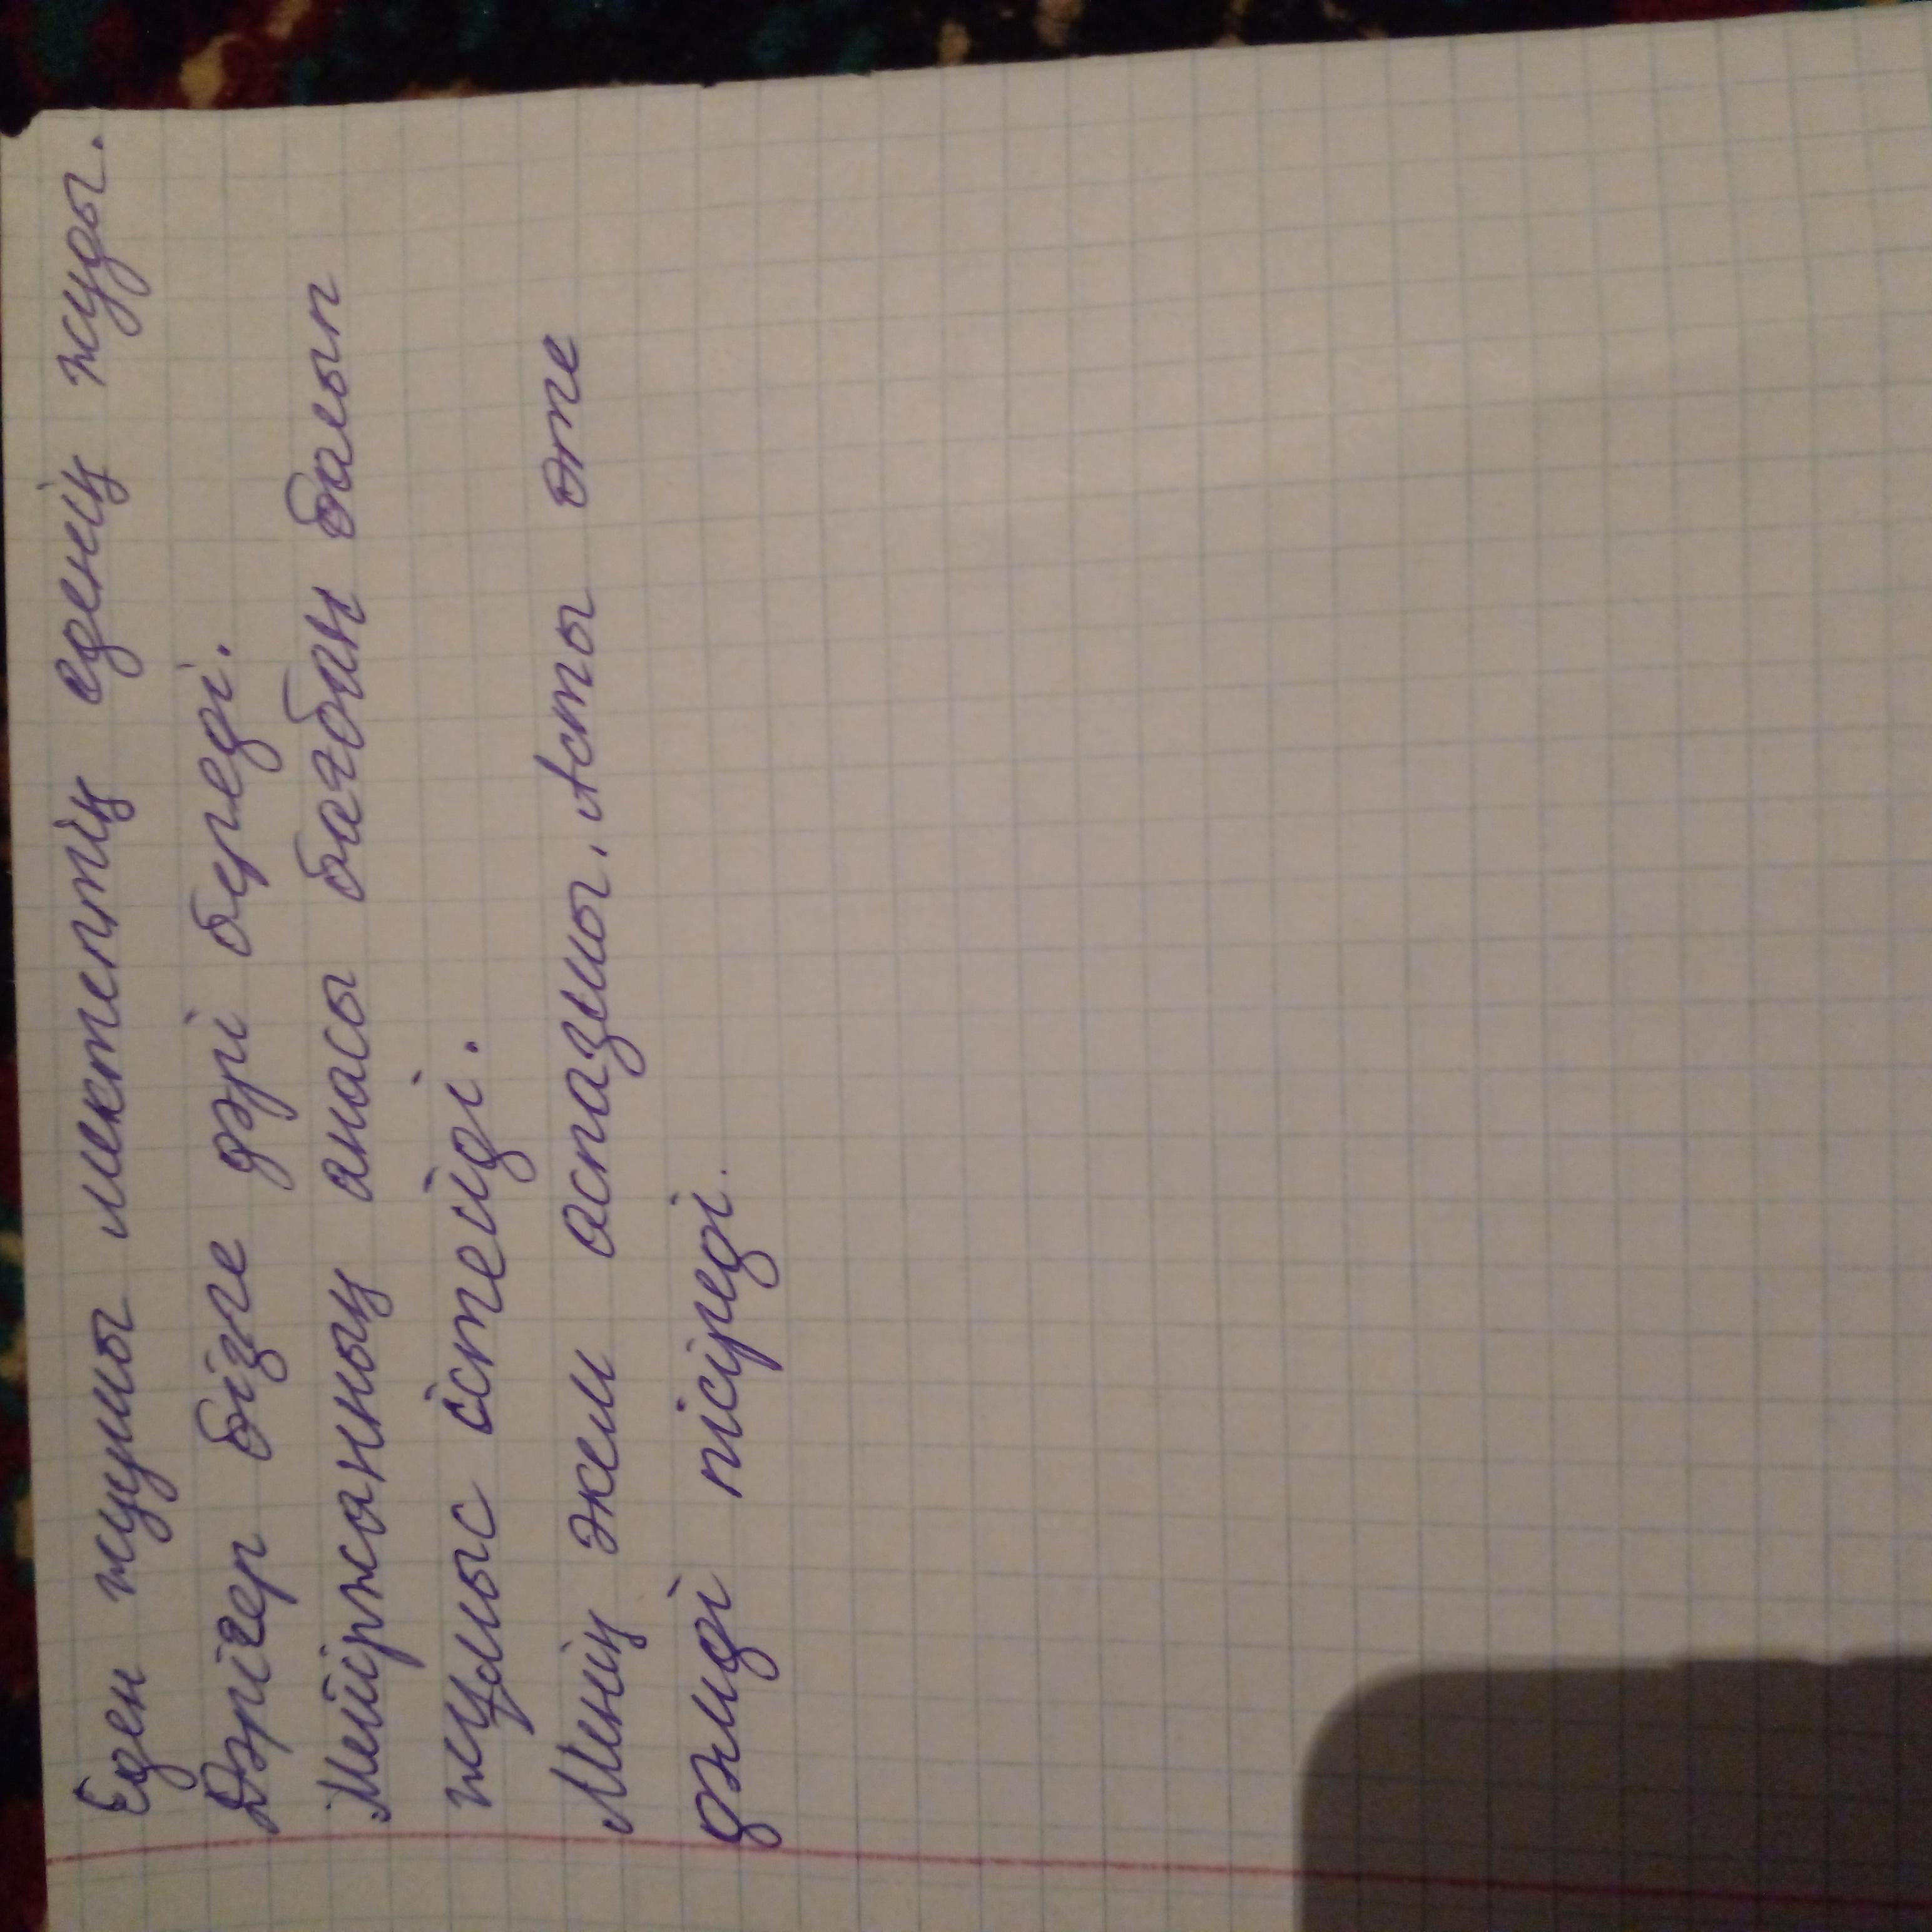 Еден жушы мектептің еденің жуды.
Дәрігер бізге дәрі береді.
Мейіржанның анасы бағбан балып
жұмыс істейді.
Менің әкем аспазшы. Асты өте
дәмді пісіреді.